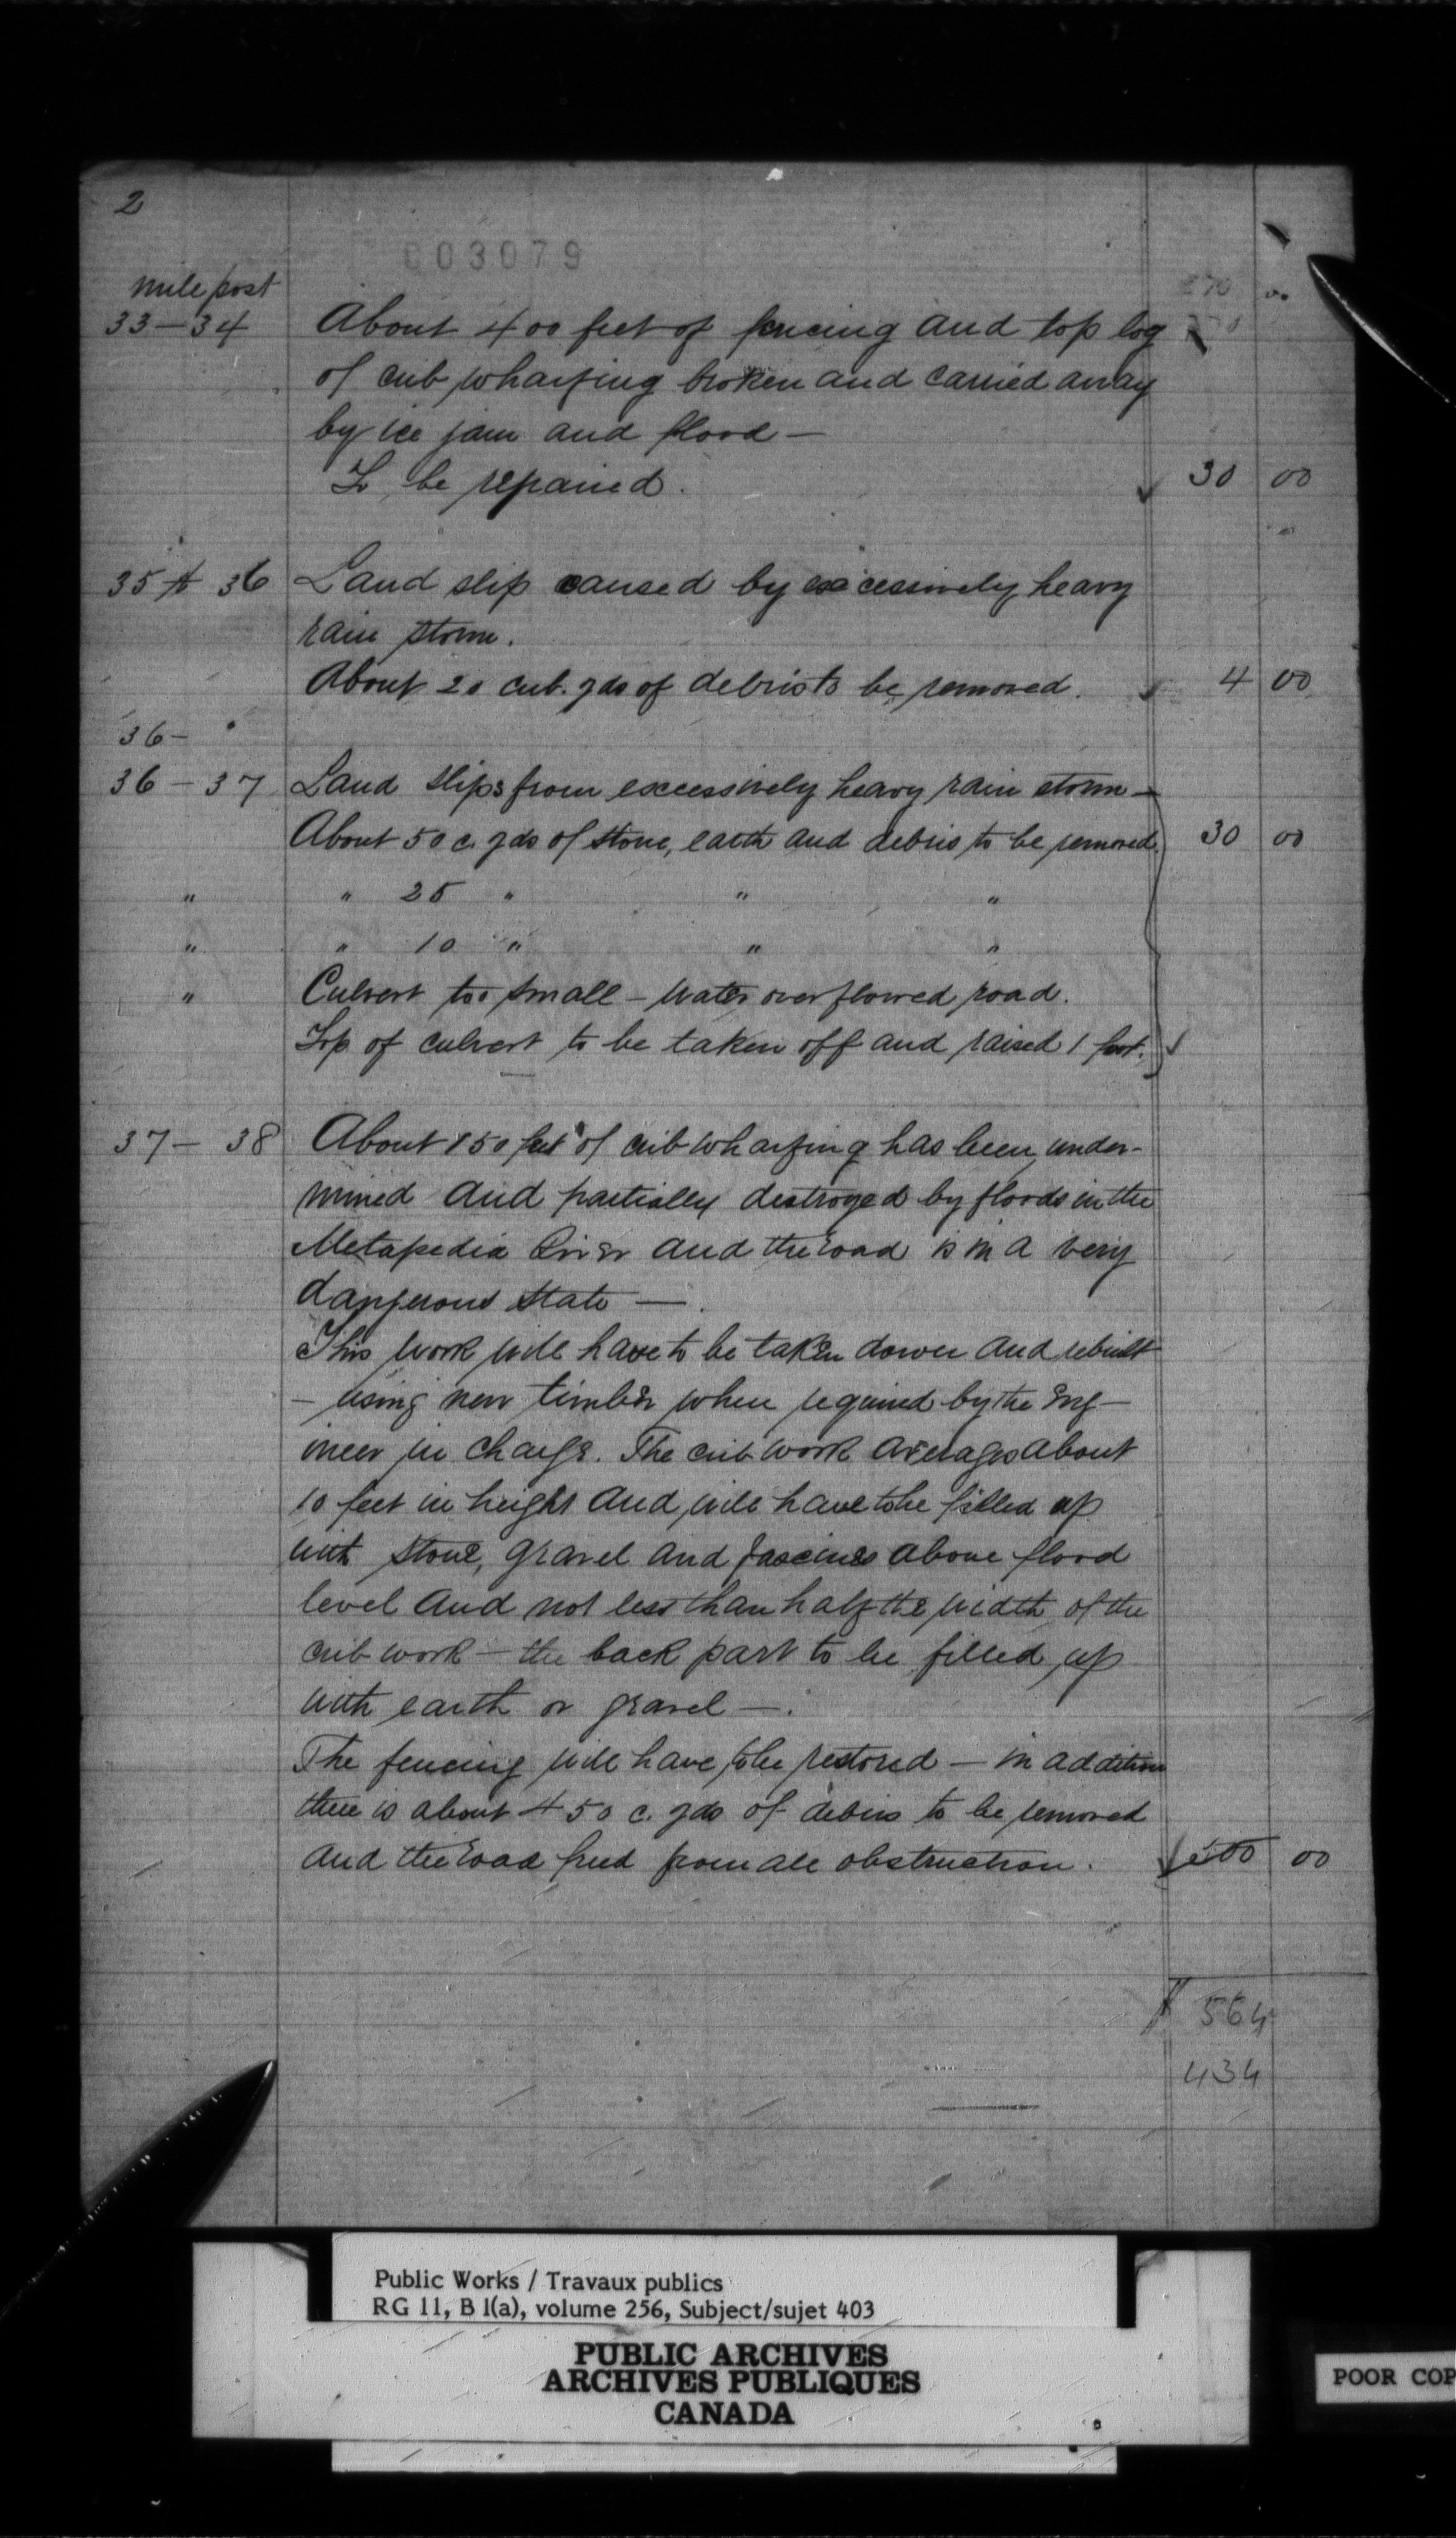 2
003079
mile post
33 – 34 About 400 feet of fencing and top log
of crib wharfing broken and carried away
by ice jam and flood –
To be repaired. 30 00
35 to 36 Land slip caused by excessively heavy
rain storm.
About 20 cub. yds of debris to be removed. 4 00
36 –
36 – 37 Land slips from excessively heavy rain storm –
About 50 c. yds of stone, earth and debris to be removed. 30 00
" " 25 " " "
" " 10 " " "
" Culvert too small – water overflowed road.
Top of culvert to be taken off and raised 1 foot.
37 – 38 About 150 feet of crib wharfing has been under-
mined and partially destroyed by floods in the
Metapedia River and the road is in a very
dangerous state –
This work will have to be taken down and rebuilt
– using new timber when required by the Eng–
ineer in charge. The crib work averages about
10 feet in height and will have to be filled up
with stone, gravel and fascines above flood
level and not less than half the width of the
crib work – the back part to be filled up
with earth or gravel –.
The fencing will have to be restored – in addition
there is about 450 c. yds of debris to be removed
and the road freed from all obstruction. 500 00
564
434
Public Works / Travaux publics
RG 11, B 1(a), volume 256, Subject/sujet 403
PUBLIC ARCHIVES
ARCHIVES PUBLIQUES
CANADA
POOR COP